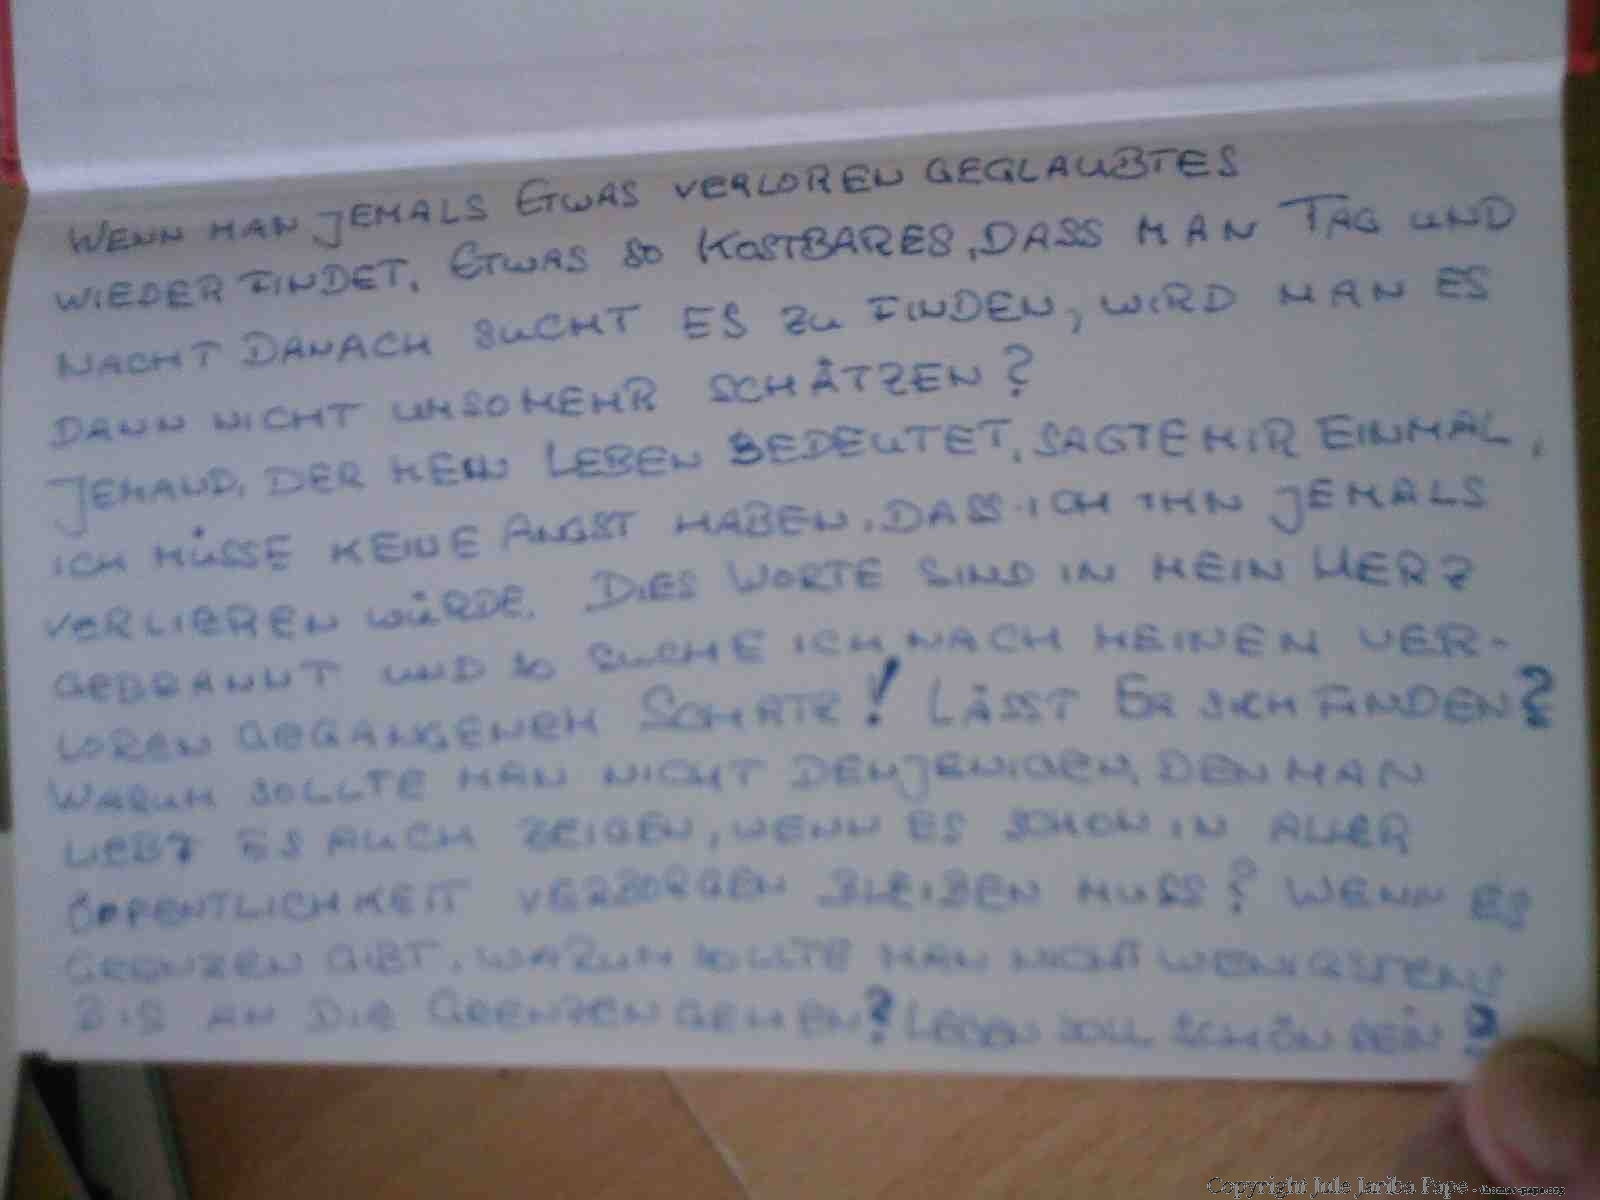 WENN MAN JEMALS ETWAS VERLOREN GEGLAUBTES
WIEDER FINDET. ETWAS SO KOSTBARES, DASS MAN TAG UND
NACHT DANACH SUCHT ES ZU FINDEN, WIRD MAN ES
DANN NICHT UMSOMEHR SCHÄTZEN?
JEMAND, DER MEIN LEBEN BEDEUTET, SAGTE MIR EINMAL,
ICH MÜSSE KEINE ANGST HABEN, DASS ICH IHN JEMALS
VERLIEREN WÜRDE. DIES WORTE SIND IN MEIN HERZ
GEBRANNT UND SO SUCHE ICH NACH MEINEN VER-
LOREN GEGANGENEM SCHATZ! LÄSST ER SICH FINDEN?
WARUM SOLLTE MAN NICHT DENJENIGEN, DEN MAN
LIEBT ES AUCH ZEIGEN, WENN ES SCHON IN ALLER
ÖFFENTLICHKEIT VERBORGEN BLEIBEN MUSS? WENN ES
GRENZEN GIBT, WARUM SOLLTE MAN NICHT WENIGSTENS
BIS AN DIE GRENZEN GEHEN? LEBEN SOLL SCHÖN SEIN?
Copyright Jule Jariba Pape -